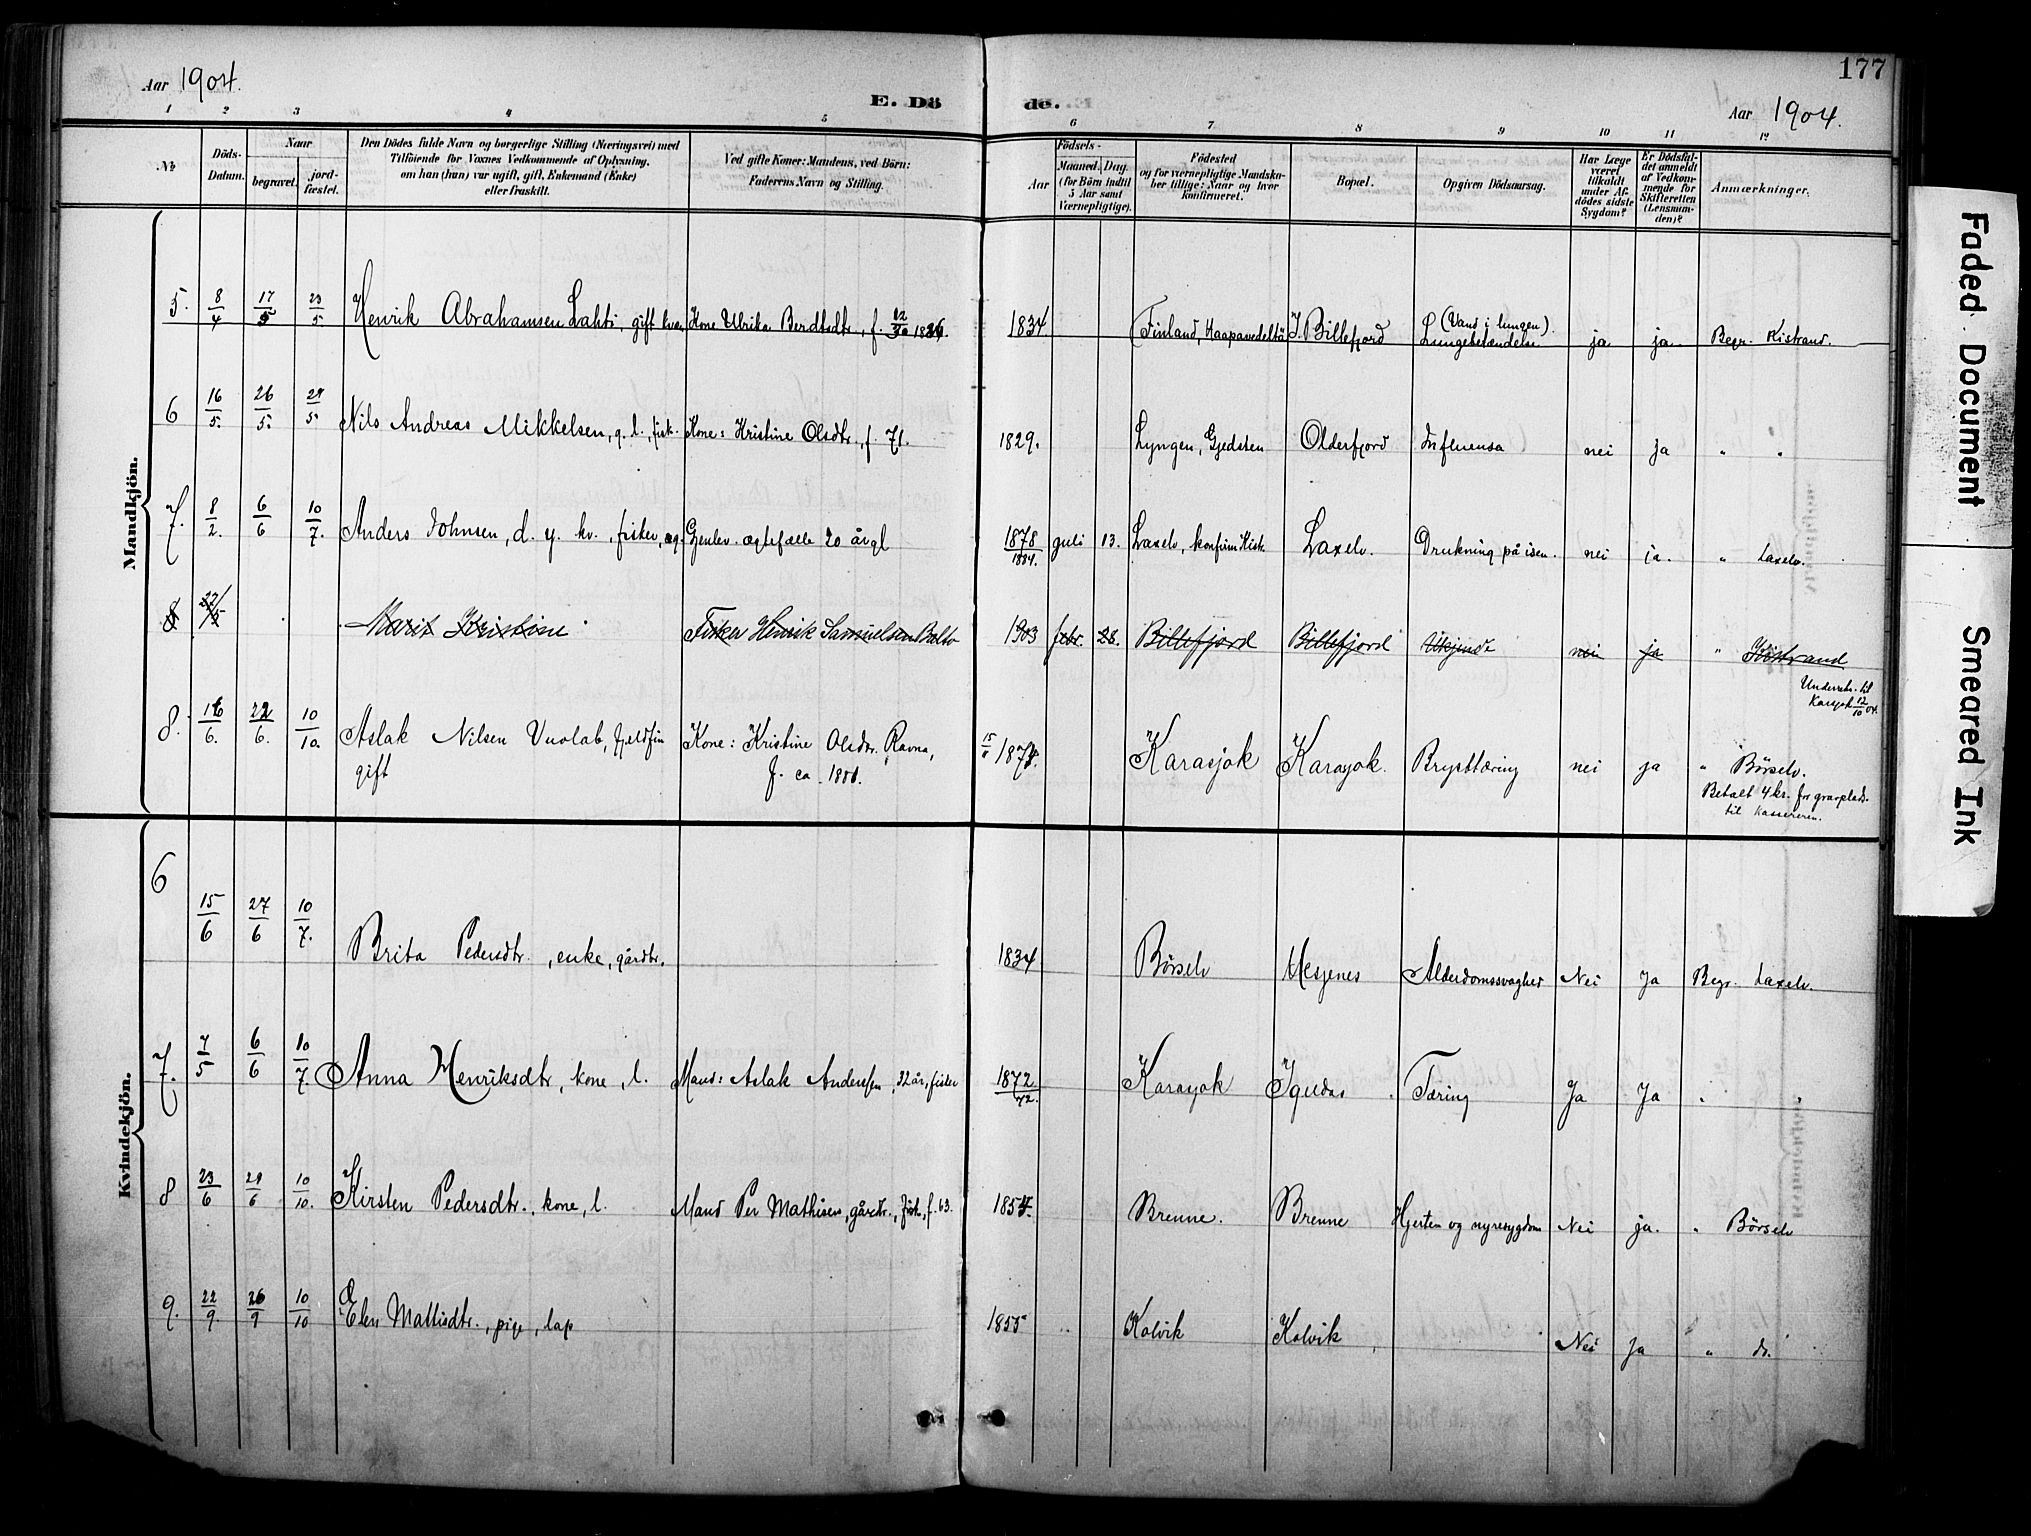 177
Aar 1904.
E. Döde.
Aar 1904.
1 2 3 4 5 6 7 8 9 10 11 12
№
Döds-Datum.
Naar
begravet.
jord-fæstet.
Den Dödes fulde Navn og borgerlige Stilling (Næringsvei) med
Tilföiende for Voxnes Vedkommende af Oplysning,
om han (hun) var ugift, gift, Enkemand (Enke)
eller fraskilt.
Ved gifte Koner: Mandens, ved Börn:
Faderens Navn og Stilling.
Födsels-
Aar
Maaned. Dag.
(for Börn indtil
5 Aar samt
Værnepligtige).
Födested
og for værnepligtige Mandska-
ber tillige: Naar og hvor
konfirmeret.
Bopæl.
Opgiven Dödsaarsag.
Har Læge
været
tilkaldt
under Af-
dödes sidste
Sygdom?
Er Dödsfal-
det anmeldt
af Vedkom-
mende for
Skifteretten
(Lensman-
den)?
Anmærkninger.
Mandkjön.
5. 8/4 17/5 23/5 Henrik Abrahamsen Lahti, gift kvæn Kone Ulrika Berdtsdtr., f. 1834 Finland, Haapavedeltä I. Billefjord (Vand i lungen). Lungebetændelse ja ja Begr. Kistrand.
6 16/5. 26/5. 29/5 Nils Andreas Mikkelsen, g. l., fisk. Kone: Kristine Olsdtr., f. 71. 1829. Lyngen, Gjedsten Olderfjord Influensa nei ja " "
7. 8/2. 6/6 10/7. Anders Johnsen, d. y. kv., fisker, Gjenlev. ægtefælle 20 år gl 1878/1884. juli 13. Laxelv, konfirm Kistr. Laxelv. Drukning på isen. nei ja. " Laxelv.
8 22/5 Marit Kristine Fisker Henrik Samuelsen Balto 1903 febr. 28. Billefjord Billefjord Ukjendt nei ja " Kistrand
Underretn. til
Karasjok 12/10 04.
8. 16/6. 22/6. 10/10. Aslak Nilsen Vuolab, fjeldfin Kone: Kristine Olsdtr. Ravna, 187 Karasjok Karasjok. Brysttæring nei ja " Börselv.
gift f. ca
Betalt 4 kr. for gravplads
til kassereren.
Kvindekjön.
6 15/6 27/6 10/7. Brita Pedersdtr., enke, gårdbr. 1834 Börselv Hesjenes Alderdomssvaghed Nei Ja Begr. Laxelv.
7. 7/5 6/6 10/7 Anna Henriksdtr, kone, l. Mand: Aslak Andersen, 32 år, fisker 1872/72. Karasjok Igeldas Tæring Ja Ja " "
8 23/6 29/6 10/10. Kirsten Pedersdtr., kone, l. Mand Per Mathisen, gårdbr., fisk., f. 63. 185 Brenne. Brenne Hjerten og nyresygdom Nei ja. " Börselv
9. 22/9. 26/9 10/10 Elen Mattisdtr., pige, lap 1855 " Kolvik Kolvik Nei Ja " do.
Faded Document
Smeared Ink